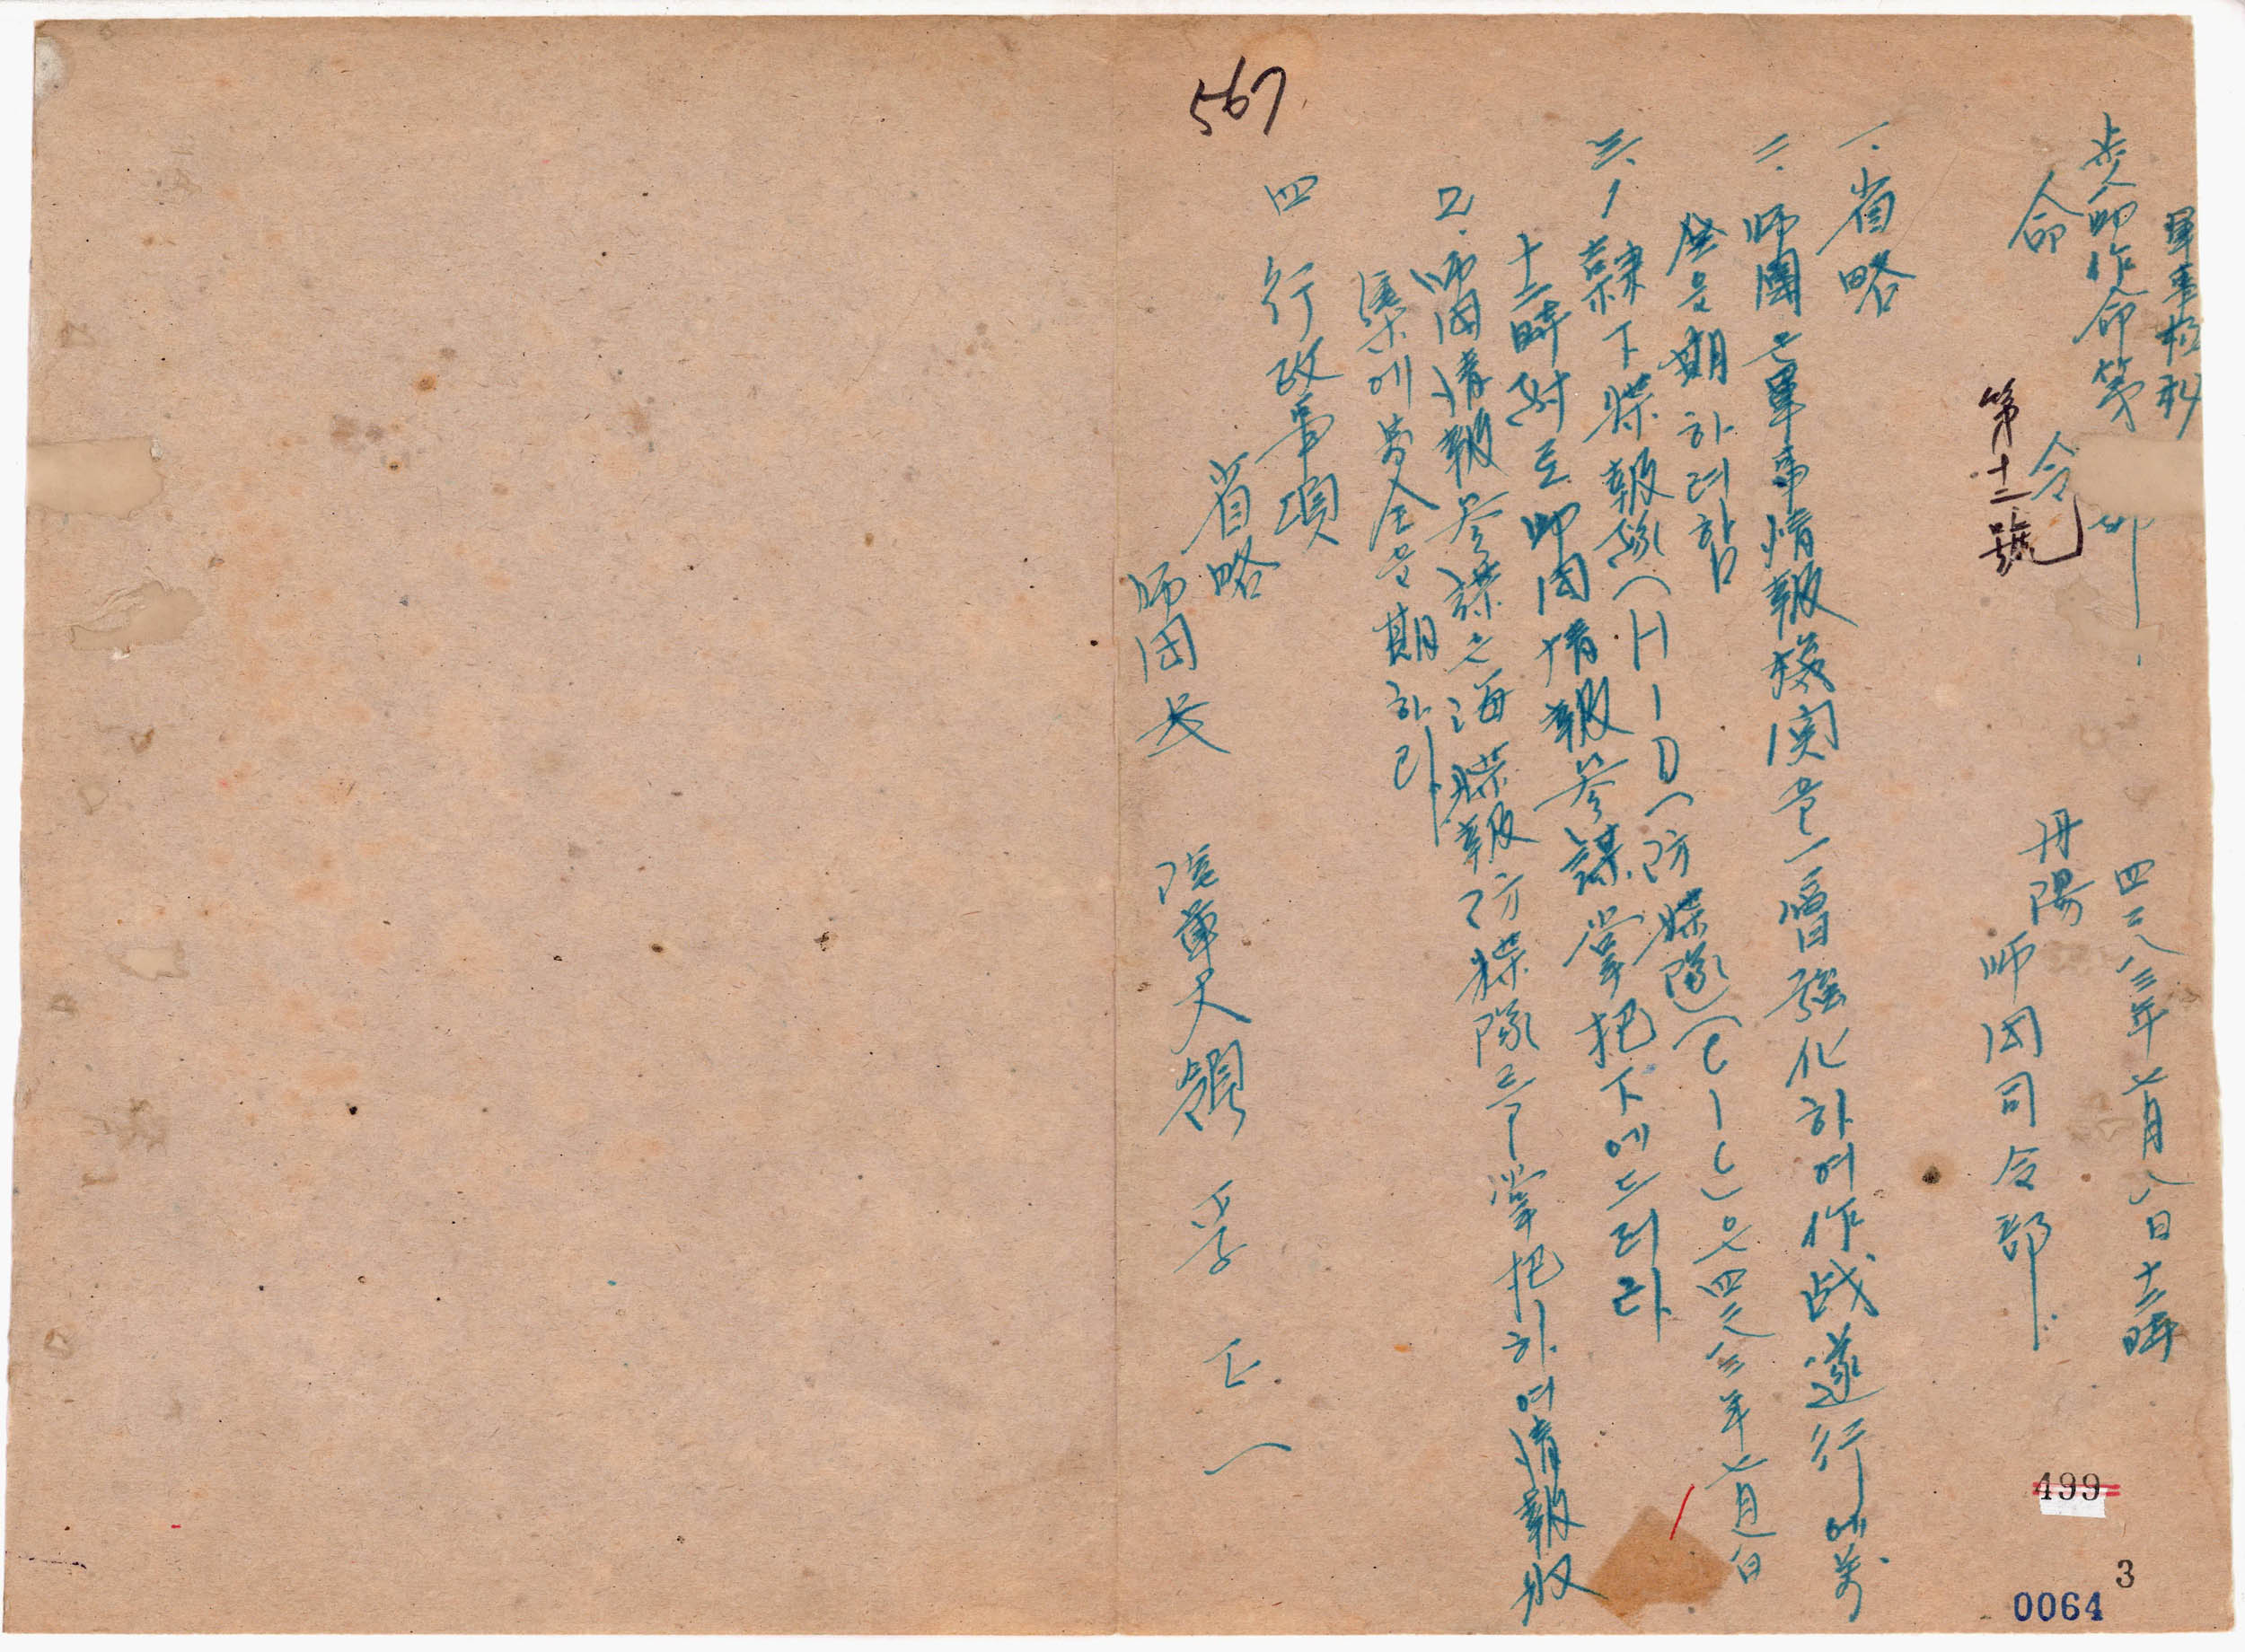 軍事極秘
步師作命第
命 令
第十二號
四二八三年七月八日十二時
丹陽
師団司令部
一. 省略
二. 師團은軍事情報機関을一層強化하여作战遂行에萬
全을期하려함
三. 1 隷下諜報隊(HID)防諜隊(CIC)은四二八三年七月
十二時附로师団情報参謀掌把下에드러라
2. 师団情報参謀은海諜報防諜隊 掌把하여情報収
集에萬全을期하라
四 行政事項
省略
师団长 陸軍大領 李 正 一
567
499
3
0064